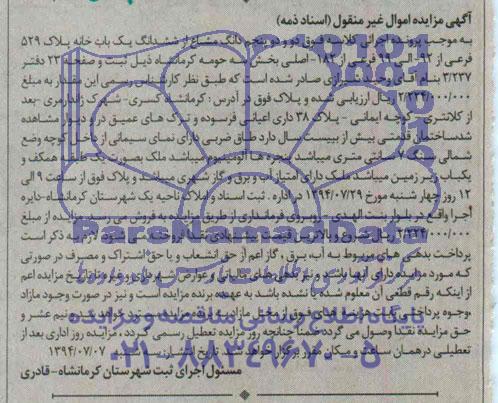 آگهی مزایده اموال غیر منقول (اسناد ذمه)
به موجب پرونده اجرائی کلاسه فوق دو و دو پنجم دانگ مشاع از ششدانگ یک باب خانه پلاک ۵۲۹
فرعی از ۹۲ الی ۹۹ فرعی از ۱۸۲- اصلی بخش سه حومه کرمانشاه ذیل ثبت و صفحه ۲۳ دفتر
۳/۲۳۷ بنام آقای وحید صادر شده است که طبق نظر کارشناس رسمی این مقدار به مبلغ
۲/۲۳۴/۰۰۰/۰۰۰ ریال ارزیابی شده و پلاک فوق در آدرس: کرمانشاه کسری- شهرک ژاندارمری- بعد
از کلانتری- کوچه ایمانی- پلاک ۳۸ دارای اعیانی فرسوده و ترک های عمیق در دیوار مشاهده
شد ساختمان قدمتی بیش از بیست سال دارد طاق ضربی دارای نمای سیمانی از داخل کوچه وضع
شمالی سنگ سانتی متری میباشد پنجره ها آلومینیوم میباشد ملک بصورت یک طبقه همکف و
یکباب زیر زمین میباشد ملک دارای امتیاز آب و برق و گاز شهری میباشد و پلاک فوق از ساعت ۹ الی
۱۲ روز چهار شنبه مورخ ۱۳۹۴/۰۷/۲۹ در اداره ثبت اسناد و املاک ناحیه یک شهرستان کرمانشاه- دایره
اجرا واقع در بلوار بنت الهدی- روبروی فرمانداری از طریق مزایده به فروش می رسد مزایده از مبلغ
۲/۲۳۴/۰۰۰/۰۰۰ ریال شروع و به بالاترین قیمت پیشنهادی نقدا فروخته می شود لازم به ذکر است
پرداخت بدهی های مربوط به آب، برق، گاز اعم از حق انشعاب و یا حق اشتراک و مصرف در صورتی
که مورد مزایده دارای آنها باشد و نیز بدهی های مالیاتی و عوارض شهرداری و غیره تا تاریخ مزایده اعم
از اینکه رقم قطعی آن معلوم شده یا نشده باشد به عهده برنده مزایده است و نیز در صورت وجود مازاد
وجوه پرداختی بابت هزینه های فوق از محل مازاد به برنده مزایده مسترد خواهد شد نیم عشر و
حق مزایده نقدا وصول می گردد ضمنا چنانچه روز مزایده تعطیل رسمی گردد، مزایده روز اداری بعد از
تعطیلی در همان ساعت و مکان مقرر برگزار خواهد شد. تاریخ انتشار: سه شنبه ۱۳۹۴/۰۷/۰۷
مسئول اجرای ثبت شهرستان کرمانشاه- قادری
ParsNamadData
پایگاه اطلاع رسانی مناقصه و مزایده
۰۲۱-۸۸۳۴۹۶۷۰-۵